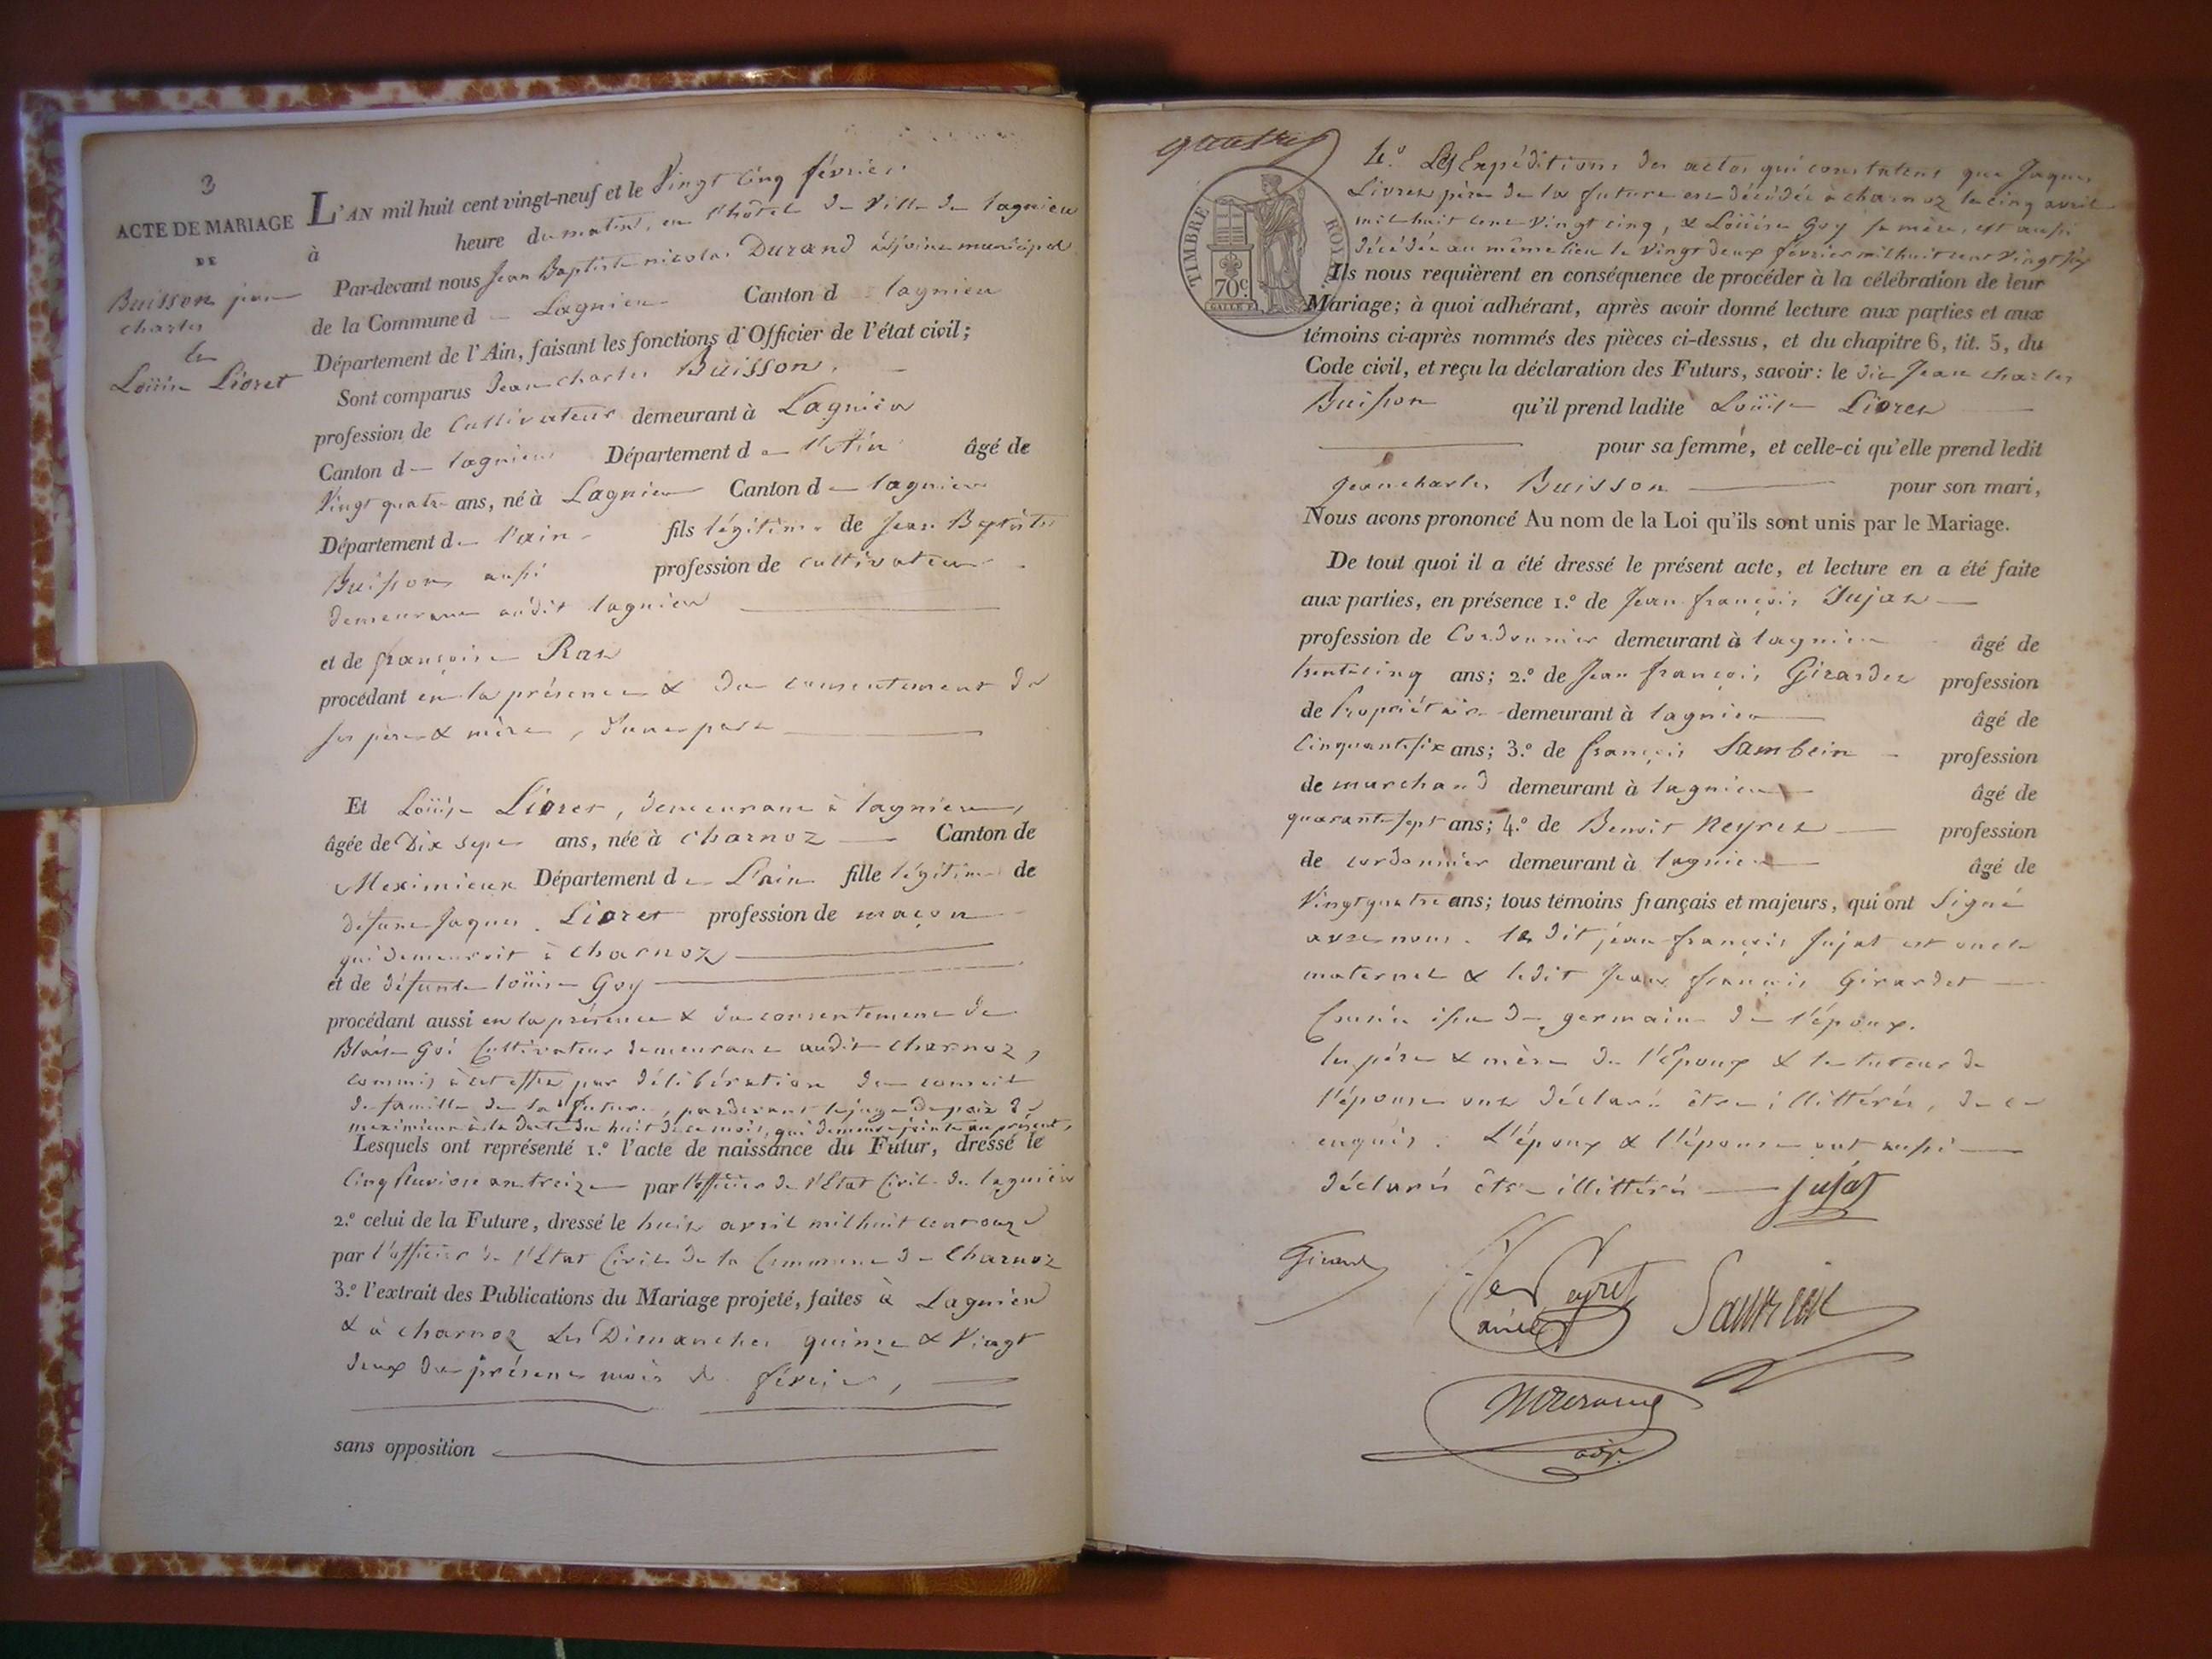 3
ACTE DE MARIAGE
DE
Buisson jean
charles
&
Loüise Lioret
L'AN mil huit cent vingt-neuf et le Vingt cinq février
à heure du matin, en l'hôtel de Ville de lagnieu
Par-devant nous Jean Baptiste nicolas Durand adjoint municipal
de la Commune d Lagnieu Canton d lagnieu
Département de l'Ain, faisant les fonctions d'Officier de l'état civil;
Sont comparus Jean charles Buisson,
profession de Cultivateur demeurant à Lagnieu
Canton d lagnieu Département d e l'Ain âgé de
Vingt quatre ans, né à Lagnieu Canton d e lagnieu
Département d e l'ain fils légitime de Jean Baptiste
Buisson aussi profession de cultivateur
demeurant audit lagnieu
et de françoise Rat
procédant en la présence & du consentement de
ses père & mère, d'une part
Et Loüise Lioret, demeurant à lagnieu,
âgée de Dix sept ans, née à charnoz Canton de
Meximieux Département d e L'ain fille légitime de
défunt Jaques Lioret profession de maçon
qui demeuroit à charnoz
et de défunte loüise Goy
procédant aussi en la présence & du consentement de
Blaise Goi Cultivateur demeurant audit charnoz,
commis à cet effet par délibération du conseil
de famille de la future, pardevant le juge de paix de
meximieux à la date du huit de ce mois, qui demeure jointe au présent,
Lesquels ont représenté 1.º l'acte de naissance du Futur, dressé le
Cinq pluviose an treize par l'officier de l'Etat Civil de lagnieu
2.º celui de la Future, dressé le huit avril mil huit cent onze
par l'officier de l'Etat Civil de la Commune de Charnoz
3.º l'extrait des Publications du Mariage projeté, faites à Lagnieu
& à charnoz Les Dimanches quinze & Vingt
deux du présent mois de février,
sans opposition
quatre
TIMBRE ROYAL
70c
4.º Les Expéditions des actes qui constatent que Jaques
Lioret père de la future est décédé à charnoz le cinq avril
mil huit cent vingt cinq, & Loüise Goy sa mère, est aussi
décédée au même lieu le vingt deux février mil huit cent vingt six
Ils nous requièrent en conséquence de procéder à la célébration de leur
Mariage; à quoi adhérant, après avoir donné lecture aux parties et aux
témoins ci-après nommés des pièces ci-dessus, et du chapitre 6, tit. 5, du
Code civil, et reçu la déclaration des Futurs, savoir: le dit Jean charles
Buisson qu'il prend ladite Loüise Lioret
pour sa femme, et celle-ci qu'elle prend ledit
Jean charles Buisson pour son mari,
Nous avons prononcé Au nom de la Loi qu'ils sont unis par le Mariage.
De tout quoi il a été dressé le présent acte, et lecture en a été faite
aux parties, en présence 1.º de Jean françois Jujat
profession de Cordonnier demeurant à lagnieu âgé de
trente cinq ans; 2.º de Jean françois Girardet profession
de Propriétaire demeurant à lagnieu âgé de
Cinquante six ans; 3.º de françois Sambein profession
de marchand demeurant à lagnieu âgé de
quarante sept ans; 4.º de Benoit Neyret profession
de cordonnier demeurant à lagnieu âgé de
Vingt quatre ans; tous témoins français et majeurs, qui ont Signé
avec nous. le dit jean françois Jujat est oncle
maternel & ledit Jean françois Girardet
Cousin issu de germain de l'époux.
les père & mère de l'époux & le tuteur de
l'épouse ont déclaré être illittérés, de ce
enquis. L'époux & l'épouse ont aussi
déclarés être illittérés Jujat
Neyret
Durand
adj.